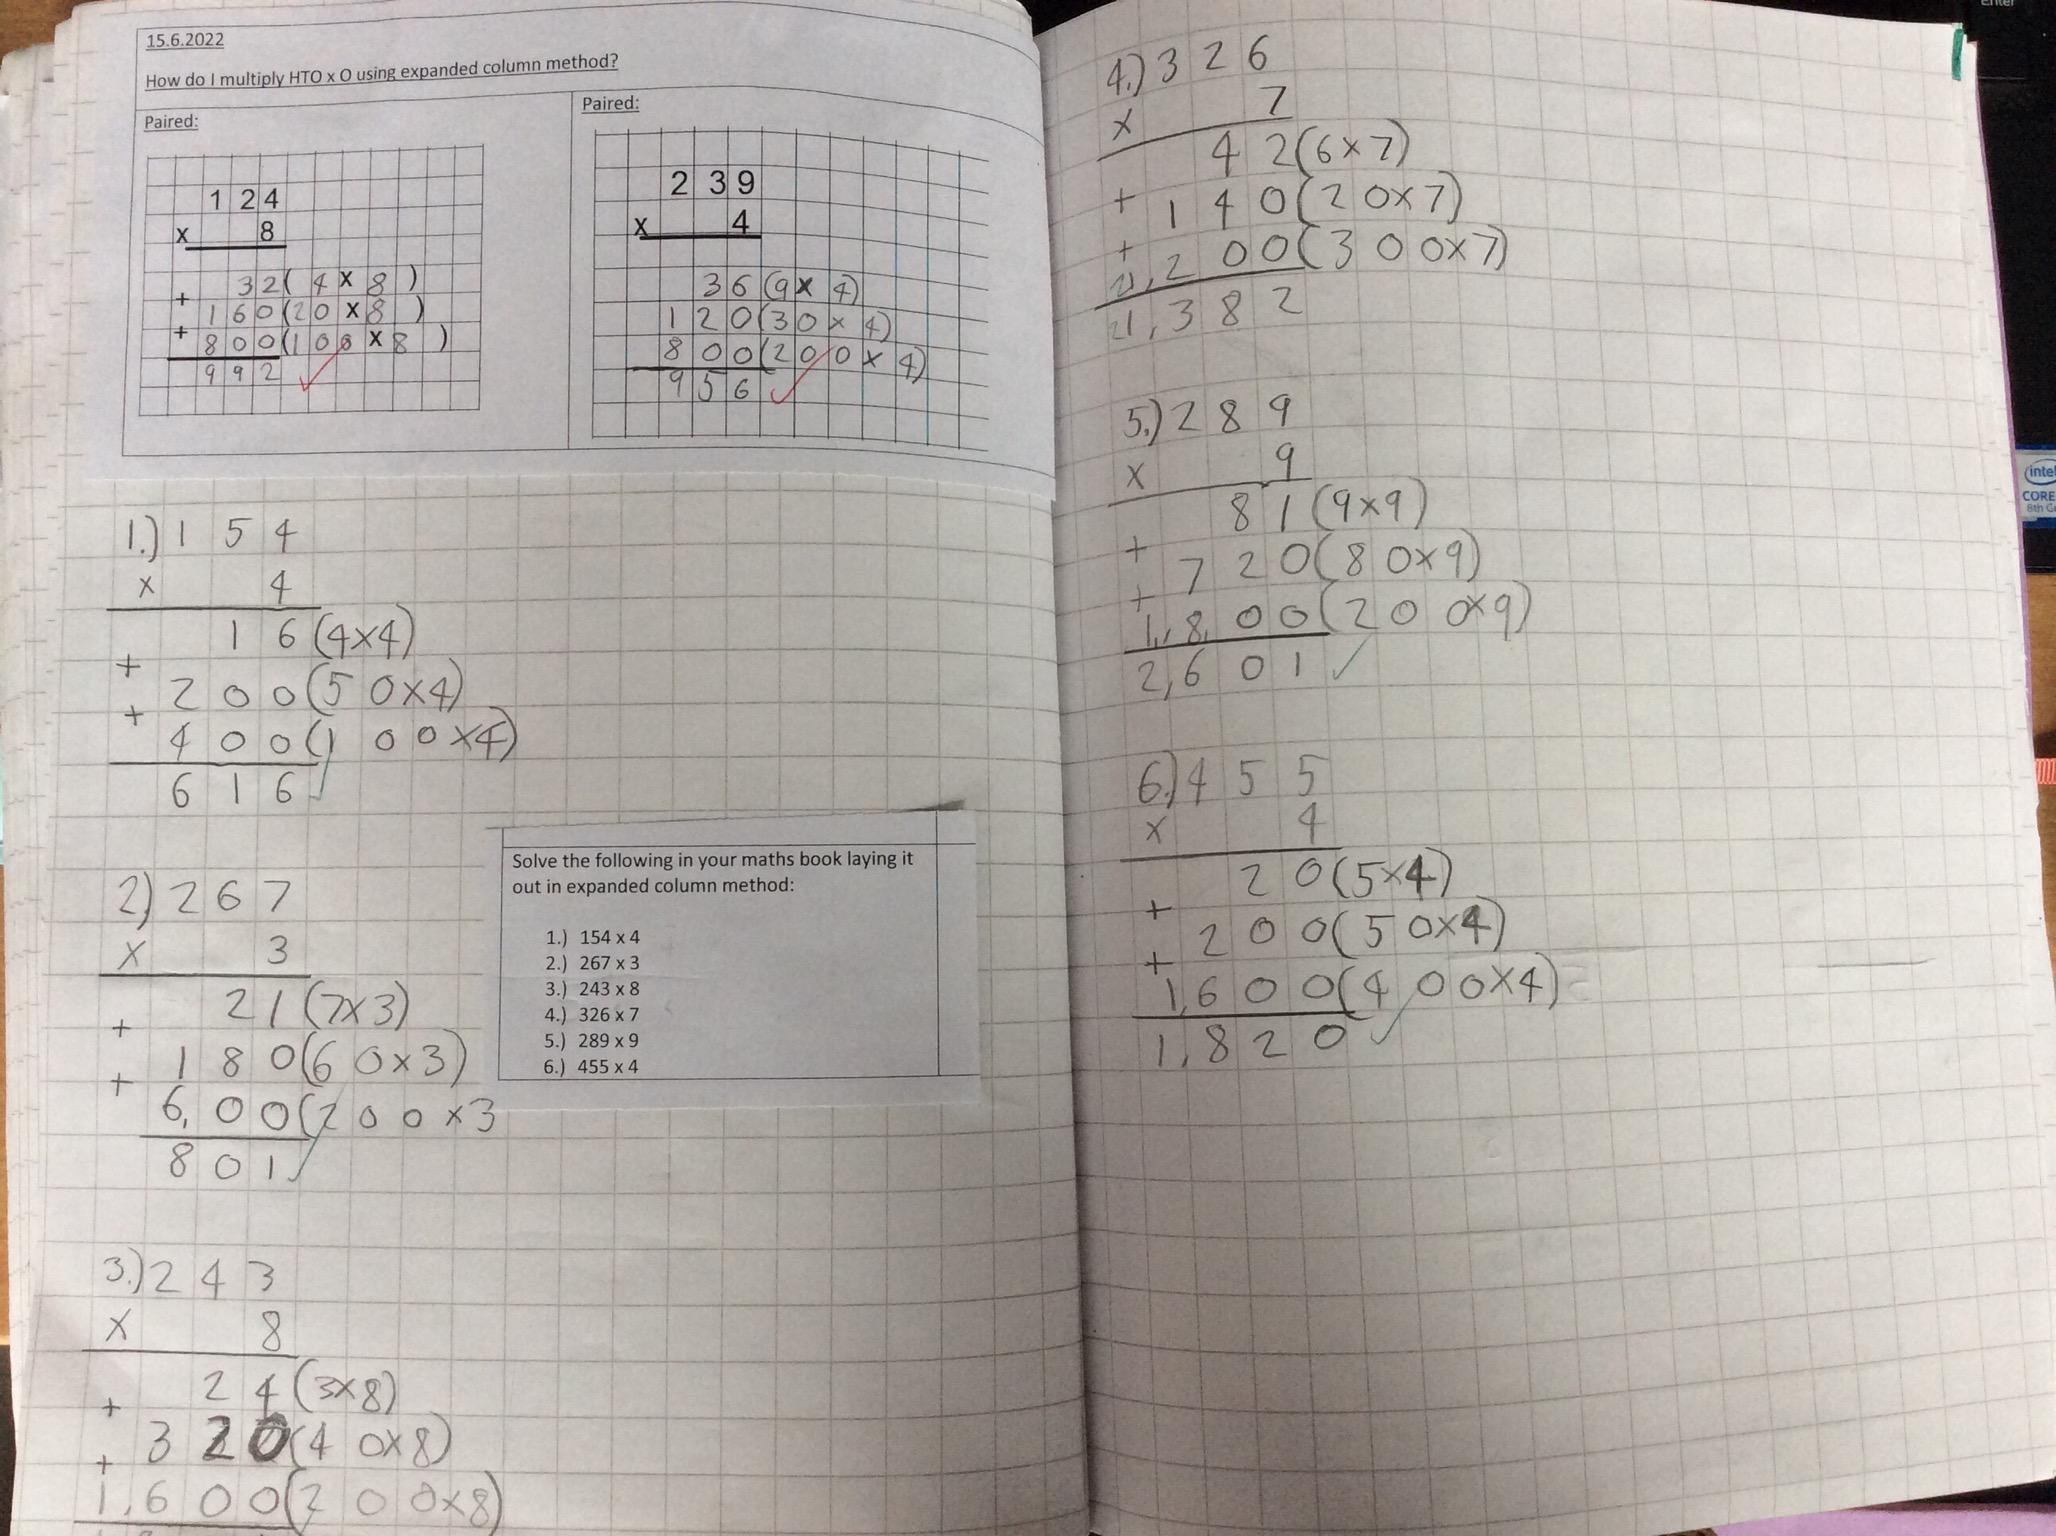 15.6.2022
How do I multiply HTO x O using expanded column method?
Paired:
1 2 4
x 8
3 2 ( 4 x 8 )
+ 1 6 0 ( 2 0 x 8 )
+ 8 0 0 ( 1 0 0 x 8 )
9 9 2
Paired:
2 3 9
x 4
3 6 ( 9 x 4 )
1 2 0 ( 3 0 x 4 )
8 0 0 ( 2 0 0 x 4 )
9 5 6
1.) 1 5 4
x 4
1 6 (4x4)
+ 2 0 0 (5 0x4)
+ 4 0 0 (1 0 0 x4)
6 1 6
2) 2 6 7
x 3
2 1 (7x3)
+ 1 8 0 (6 0x3)
+ 6, 0 0 (2 0 0 x3
8 0 1
Solve the following in your maths book laying it
out in expanded column method:
1.) 154 x 4
2.) 267 x 3
3.) 243 x 8
4.) 326 x 7
5.) 289 x 9
6.) 455 x 4
3.) 2 4 3
x 8
2 4 (3x8)
+ 3 2 0 (4 0x8)
+ 1,6 0 0 (2 0 0x8)
4.) 3 2 6
x 7
4 2 (6x7)
+ 1 4 0 (2 0x7)
+ 2 0 0 (3 0 0x7)
3 8 2
5.) 2 8 9
x 9
8 1 (9x9)
+ 7 2 0 (8 0x9)
+ 1,8 0 0 (2 0 0x9)
2,6 0 1
6.) 4 5 5
x 4
2 0 (5x4)
+ 2 0 0 (5 0x4)
+ 1,6 0 0 (4 0 0x4)
1,8 2 0
Enter
intel
CORE
8th Ge